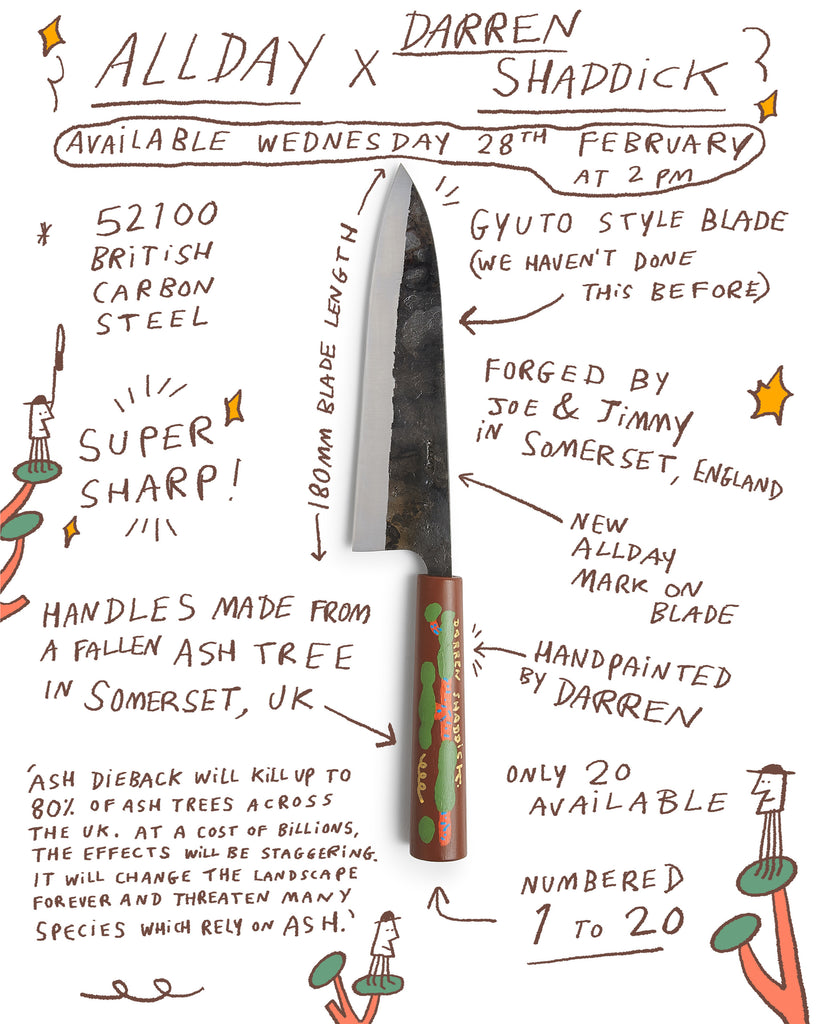 ALLDAY X DARREN
SHADDICK
AVAILABLE WEDNESDAY 28TH FEBRUARY
AT 2 PM
* 52100
BRITISH
CARBON
STEEL
180MM BLADE LENGTH
GYUTO STYLE BLADE
(WE HAVEN'T DONE
THIS BEFORE)
SUPER
SHARP!
FORGED BY
JOE & JIMMY
IN SOMERSET, ENGLAND
NEW
ALLDAY
MARK ON
BLADE
HANDLES MADE FROM
A FALLEN ASH TREE
IN SOMERSET, UK
HANDPAINTED
BY DARREN
DARREN SHADDICK.
'ASH DIEBACK WILL KILL UP TO
80% OF ASH TREES ACROSS
THE UK. AT A COST OF BILLIONS,
THE EFFECTS WILL BE STAGGERING.
IT WILL CHANGE THE LANDSCAPE
FOREVER AND THREATEN MANY
SPECIES WHICH RELY ON ASH.'
ONLY 20
AVAILABLE
NUMBERED
1 TO 20